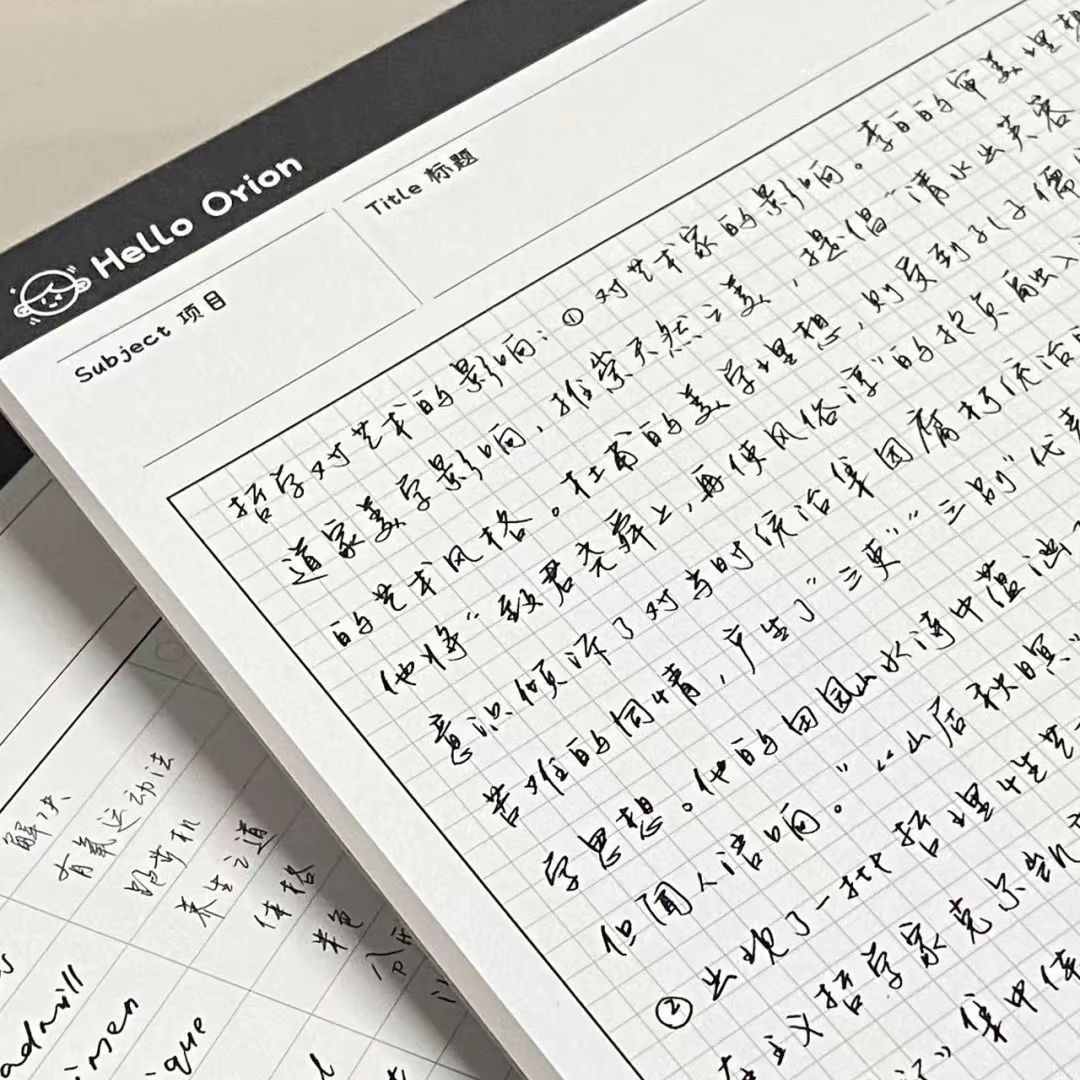 Hello Orion
Subject 项目
Title 标题
哲学对艺术的影响：① 对艺术家的影响。李白的审美理想
道家美学影响，推崇天然之美，提倡“清水出芙蓉
的艺术风格。杜甫的美学理想，则受到孔子儒
他将“致君尧舜上，再使风俗淳”的抱负融入
意识倾诉了对当时统治集团腐朽统治
苦难的同情，产生了“三吏”“三别”代表
学思想。他的田园山水诗中蕴涵
但闻人语响。”“山居秋暝”
② 出现了一批哲理性艺
在主义哲学家克尔凯
”集中体
解决
有氧运动法
跑步机
养生之道
体格
米色
分
imen
ique